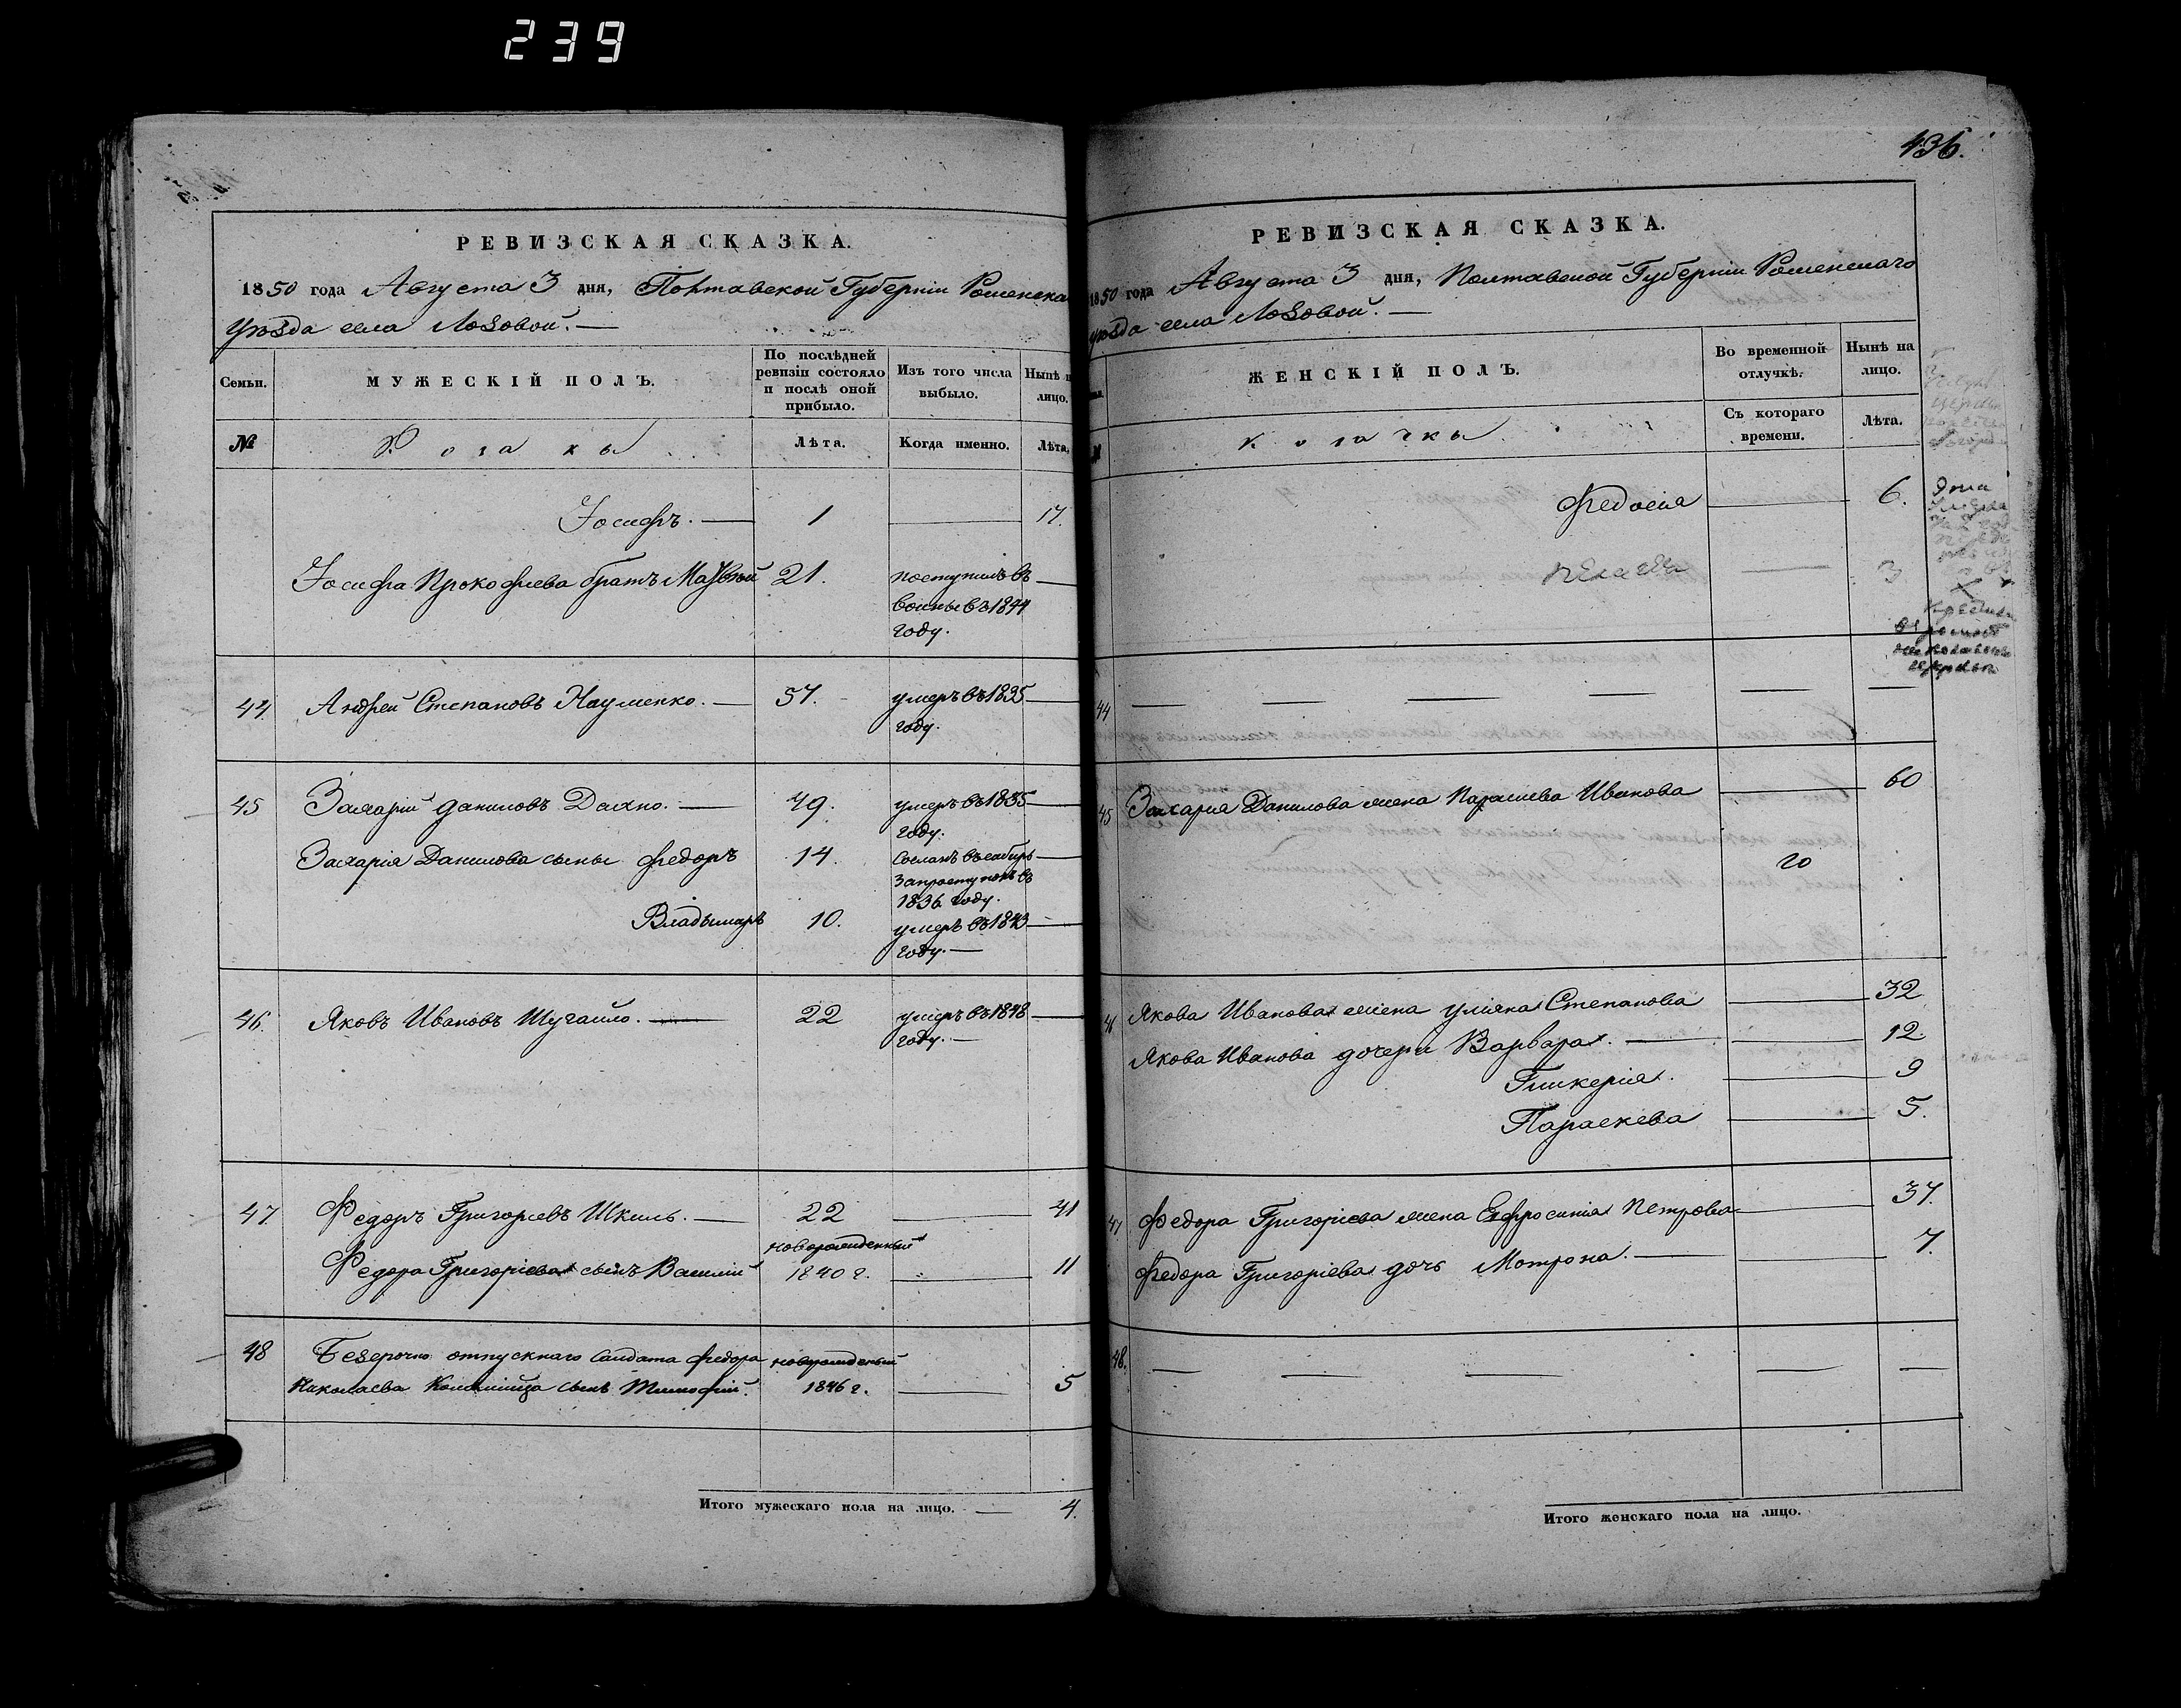 239
РЕВИЗСКАЯ СКАЗКА.
1850 года Августа 3 дня, Полтавской Губерніи Роменска
уѣзда села Лозовой. —
Семьи.
МУЖЕСКІЙ ПОЛЪ.
По послѣдней ревизіи состояло и послѣ оной прибыло.
Изъ того числа выбыло.
Нынѣ н лицо.
№
Козаки
Лѣта.
Когда именно.
Лѣта.
Іосифъ. — 1 — 17.
Іосифа Прокофіева братъ Матвѣй 21. поступилъ въ —
воины въ 1844
году.
44 Андрей Степановъ Науменко. — 57. умеръ въ 1835 —
году.
45 Захарій Даниловъ Дахно. — 49. умеръ въ 1835 —
году.
Захарія Данилова сыны Федоръ 14. Сосланъ въ сибирь —
за проступокъ въ
1836 году.
Владымиръ 10. умеръ въ 1843 —
году. —
46. Яковъ Ивановъ Шугайло. — 22 умеръ въ 1848 —
году. —
47 Федоръ Григорьевъ Шкиль. — 22 — 41
новорожденный
Федора Григоріева сынъ Василій 1840 г. — 11
48 Безсрочно отпускнаго Солдата Федора новорожденый
Николаева Коломійца сынъ Тимофій. 1846 г. — 5
Итого мужескаго пола на лицо. — 4.
436.
РЕВИЗСКАЯ СКАЗКА.
1850 года Августа 3 дня, Полтавской Губерніи Роменскаго
уѣзда села Лозовой. —
ЖЕНСКІЙ ПОЛЪ.
Во временной отлучкѣ.
Нынѣ на лицо.
№
козачки
Съ котораго времени.
Лѣта.
Федосія — 6.
Пелагея — 3
44 — — — — —
45 Захарія Данилова жена Параскева Иванова — 60
46 Якова Иванова жена Уліяна Степанова — 32
Якова Иванова дочери Варвара. — — 12.
Гликерія. — 9
Параскева — 5.
47 Федора Григоріева жена Евфросинія Петрова — 37.
Федора Григоріева дочь Мотрона. — — 7.
48. — — — — —
Итого женскаго пола на лицо.